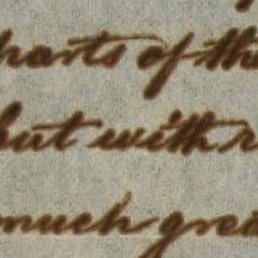 harts of the
but with r
much grea